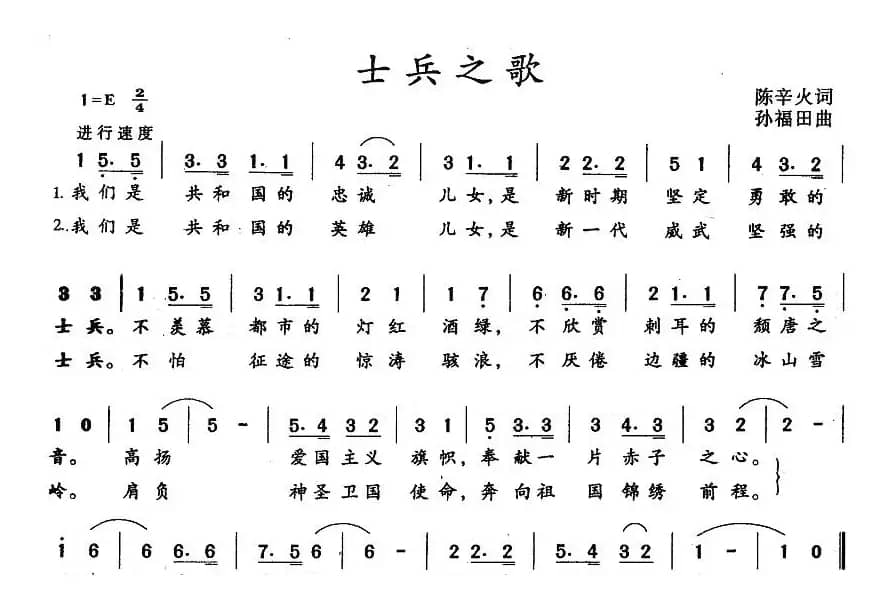 士兵之歌
1=E 2/4
陈辛火词
孙福田曲
进行速度
1 5. 5 | 3. 3 1. 1 | 4 3. 2 | 3 1. 1 | 2 2. 2 | 5 1 | 4 3. 2 |
1. 我们是 共和国的 忠诚 儿女,是 新时期 坚定 勇敢的
2. 我们是 共和国的 英雄 儿女,是 新一代 威武 坚强的
3 3 | 1 5. 5 | 3 1. 1 | 2 1 | 1 7 | 6 6. 6 | 2 1. 1 | 7 7. 5 |
士兵。不羡慕 都市的 灯红 酒绿,不欣赏 刺耳的 颓唐之
士兵。不怕 征途的 惊涛 骇浪,不厌倦 边疆的 冰山雪
1 0 | 1 5 | 5 - | 5. 4 3 2 | 3 1 | 5 3. 3 | 3 4. 3 | 3 2 | 2 - |
音。高扬 爱国主义 旗帜,奉献一 片赤子 之心。
岭。肩负 神圣卫国 使命,奔向祖 国锦绣 前程。
i 6 | 6 6. 6 | 7. 5 6 | 6 - | 2 2. 2 | 5. 4 3 2 | 1 - | 1 0 ‖